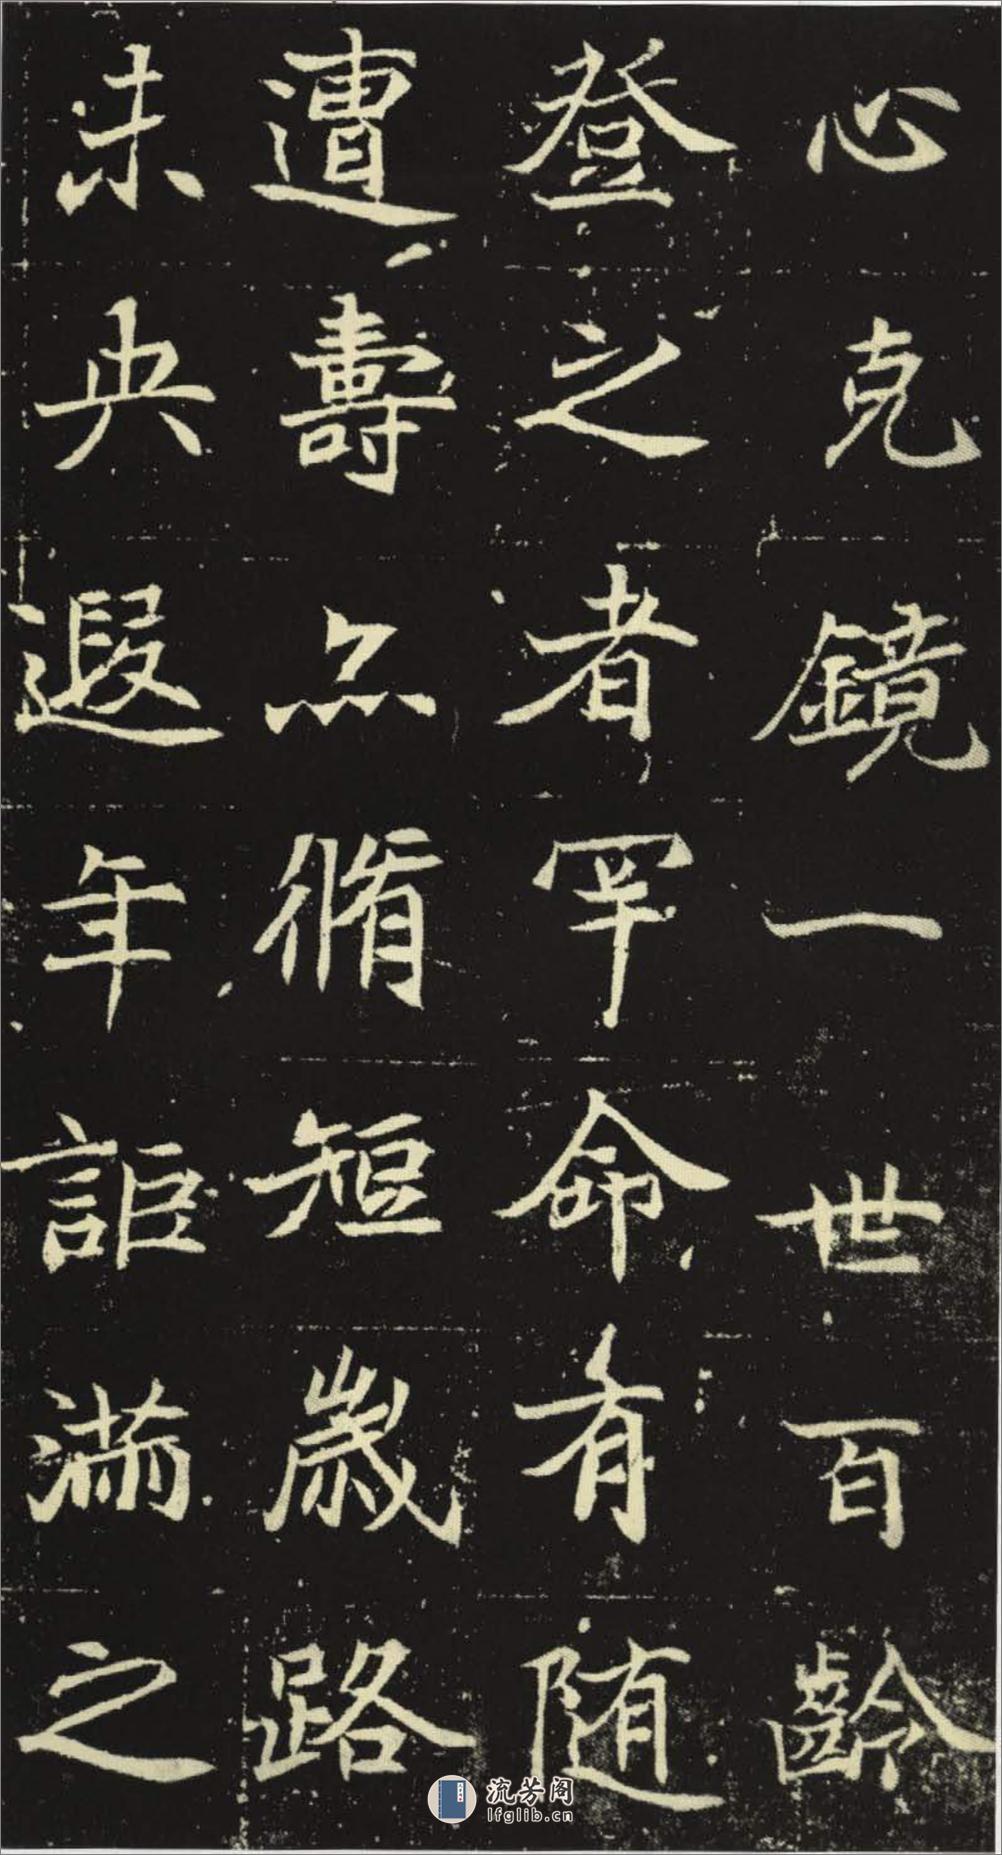 心克鏡一世百齡
登之者罕命有随
遭壽之脩短歲路
未央遐年詎満之
流芳阁
lfglib.cn